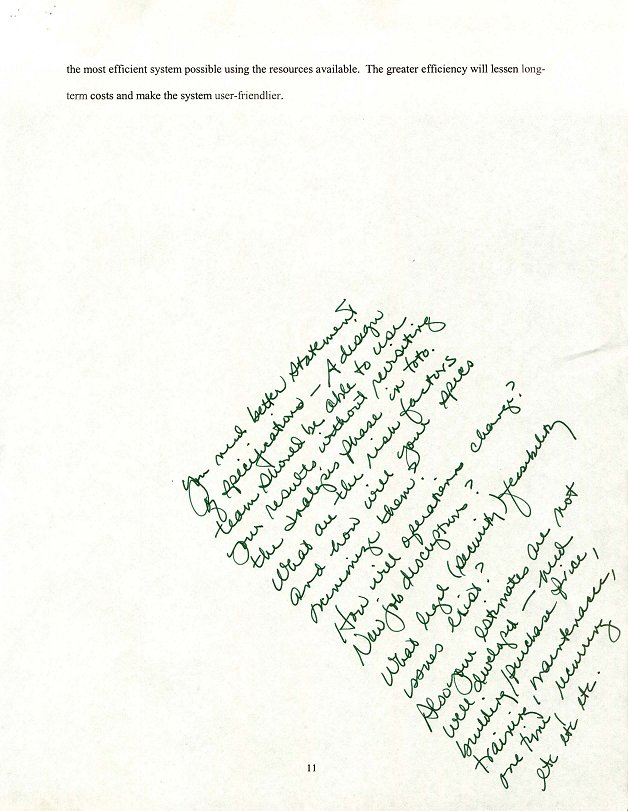 the most efficient system possible using the resources available. The greater efficiency will lessen long-
term costs and make the system user-friendlier.
You need better statement
of specifications — A design
team should be able to use
your results without revisiting
the analysis phase in toto.
What are the risk factors
and how will your specs
minimize them?
How will operations change?
New job descriptions?
What legal (security) feasibility
issues exist?
Also your estimates are not
well developed — need
building/purchase price,
training, maintenance,
one time, recurring
etc etc etc.
11